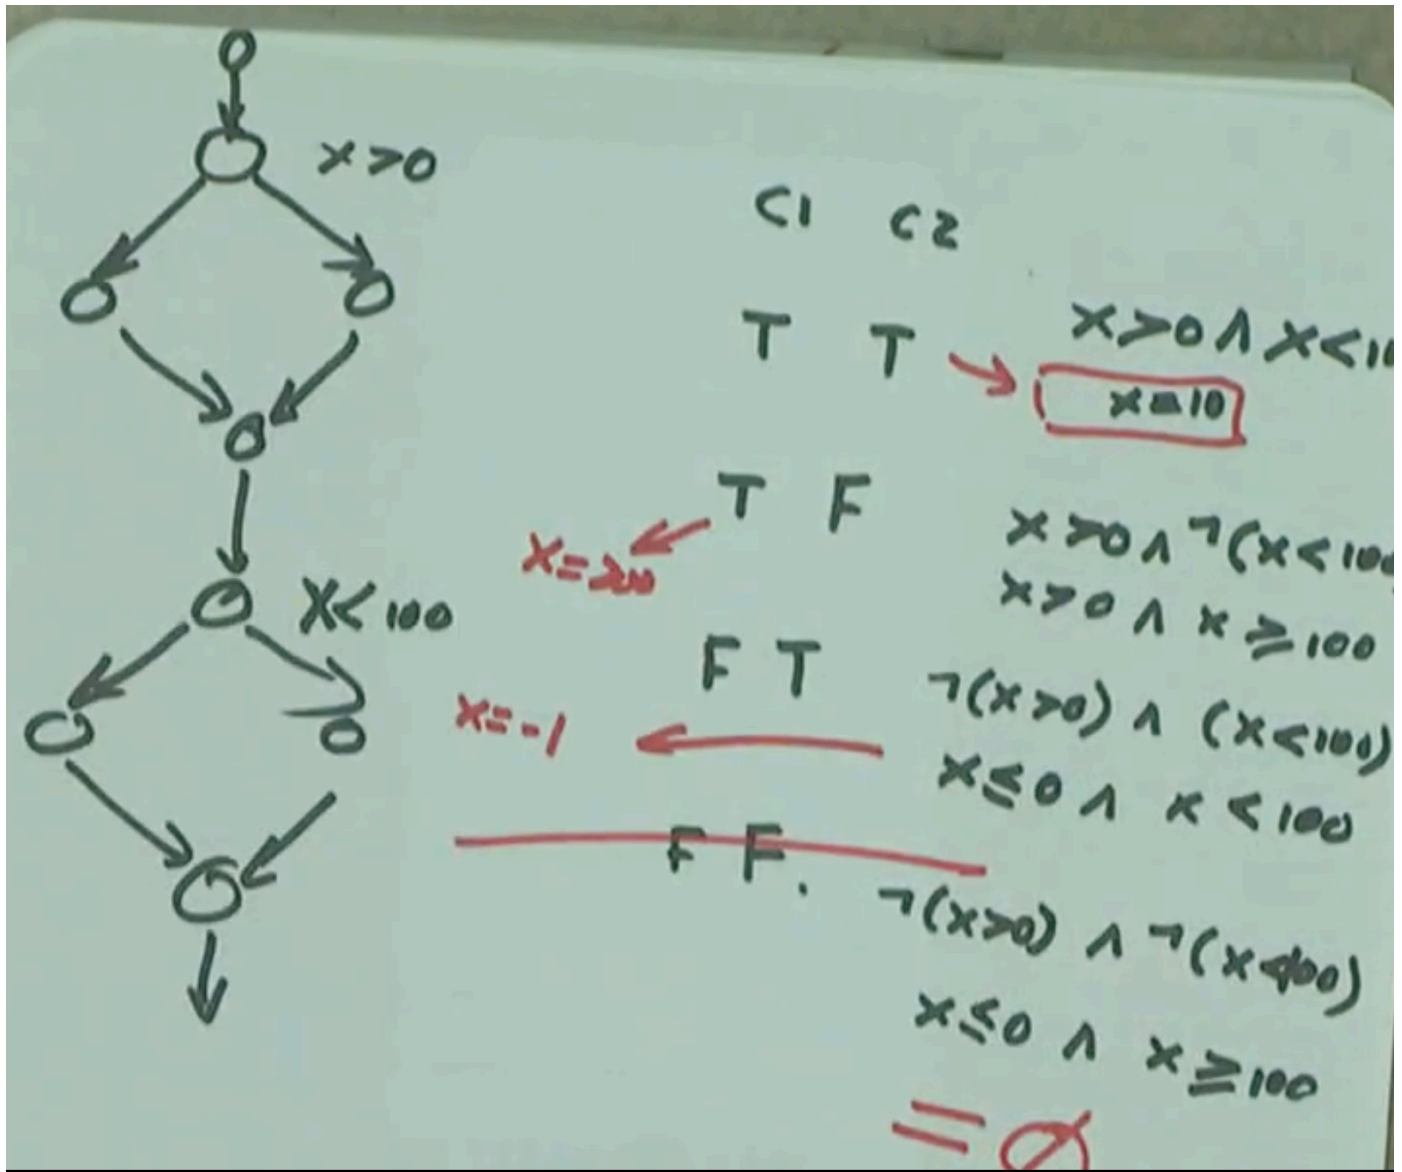 x>0
C1 C2
T T
x>0∧x<10
x=10
T F
x=200
x>0∧¬(x<100
x>0∧x≥100
x<100
F T
x=-1
¬(x>0)∧(x<100)
x≤0∧x<100
F F.
¬(x>0)∧¬(x<100)
x≤0∧x≥100
=∅